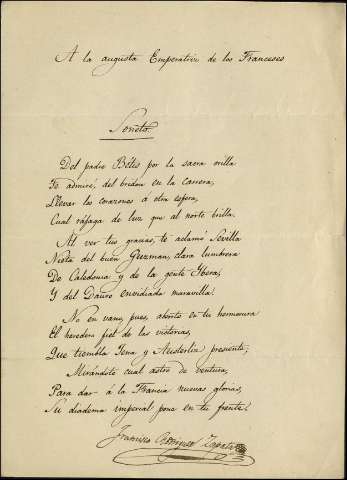 A la augusta Emperatriz de los Franceses
Soneto.
Del padre Bétis por la sacra orilla
Te admiré, del bridon en la carrera,
Llevar los corazones á otra esfera,
Cual ráfaga de luz que al norte brilla.
Al ver tus gracias, te aclamó Sevilla
Nieta del buen Guzman, clara lumbrera
De Caledonia y de la gente Ybera,
Y del Dauro envidiada maravilla.
No en vano, pues, absorto en tu hermosura
El heredero fiel de las victorias,
Que tiembla Jena y Austerliz presente;
Mirándote cual astro de ventura,
Para dar á la Francia nuevas glorias,
Su diadema imperial pone en tu frente.
Francisco Rodriguez Zapata